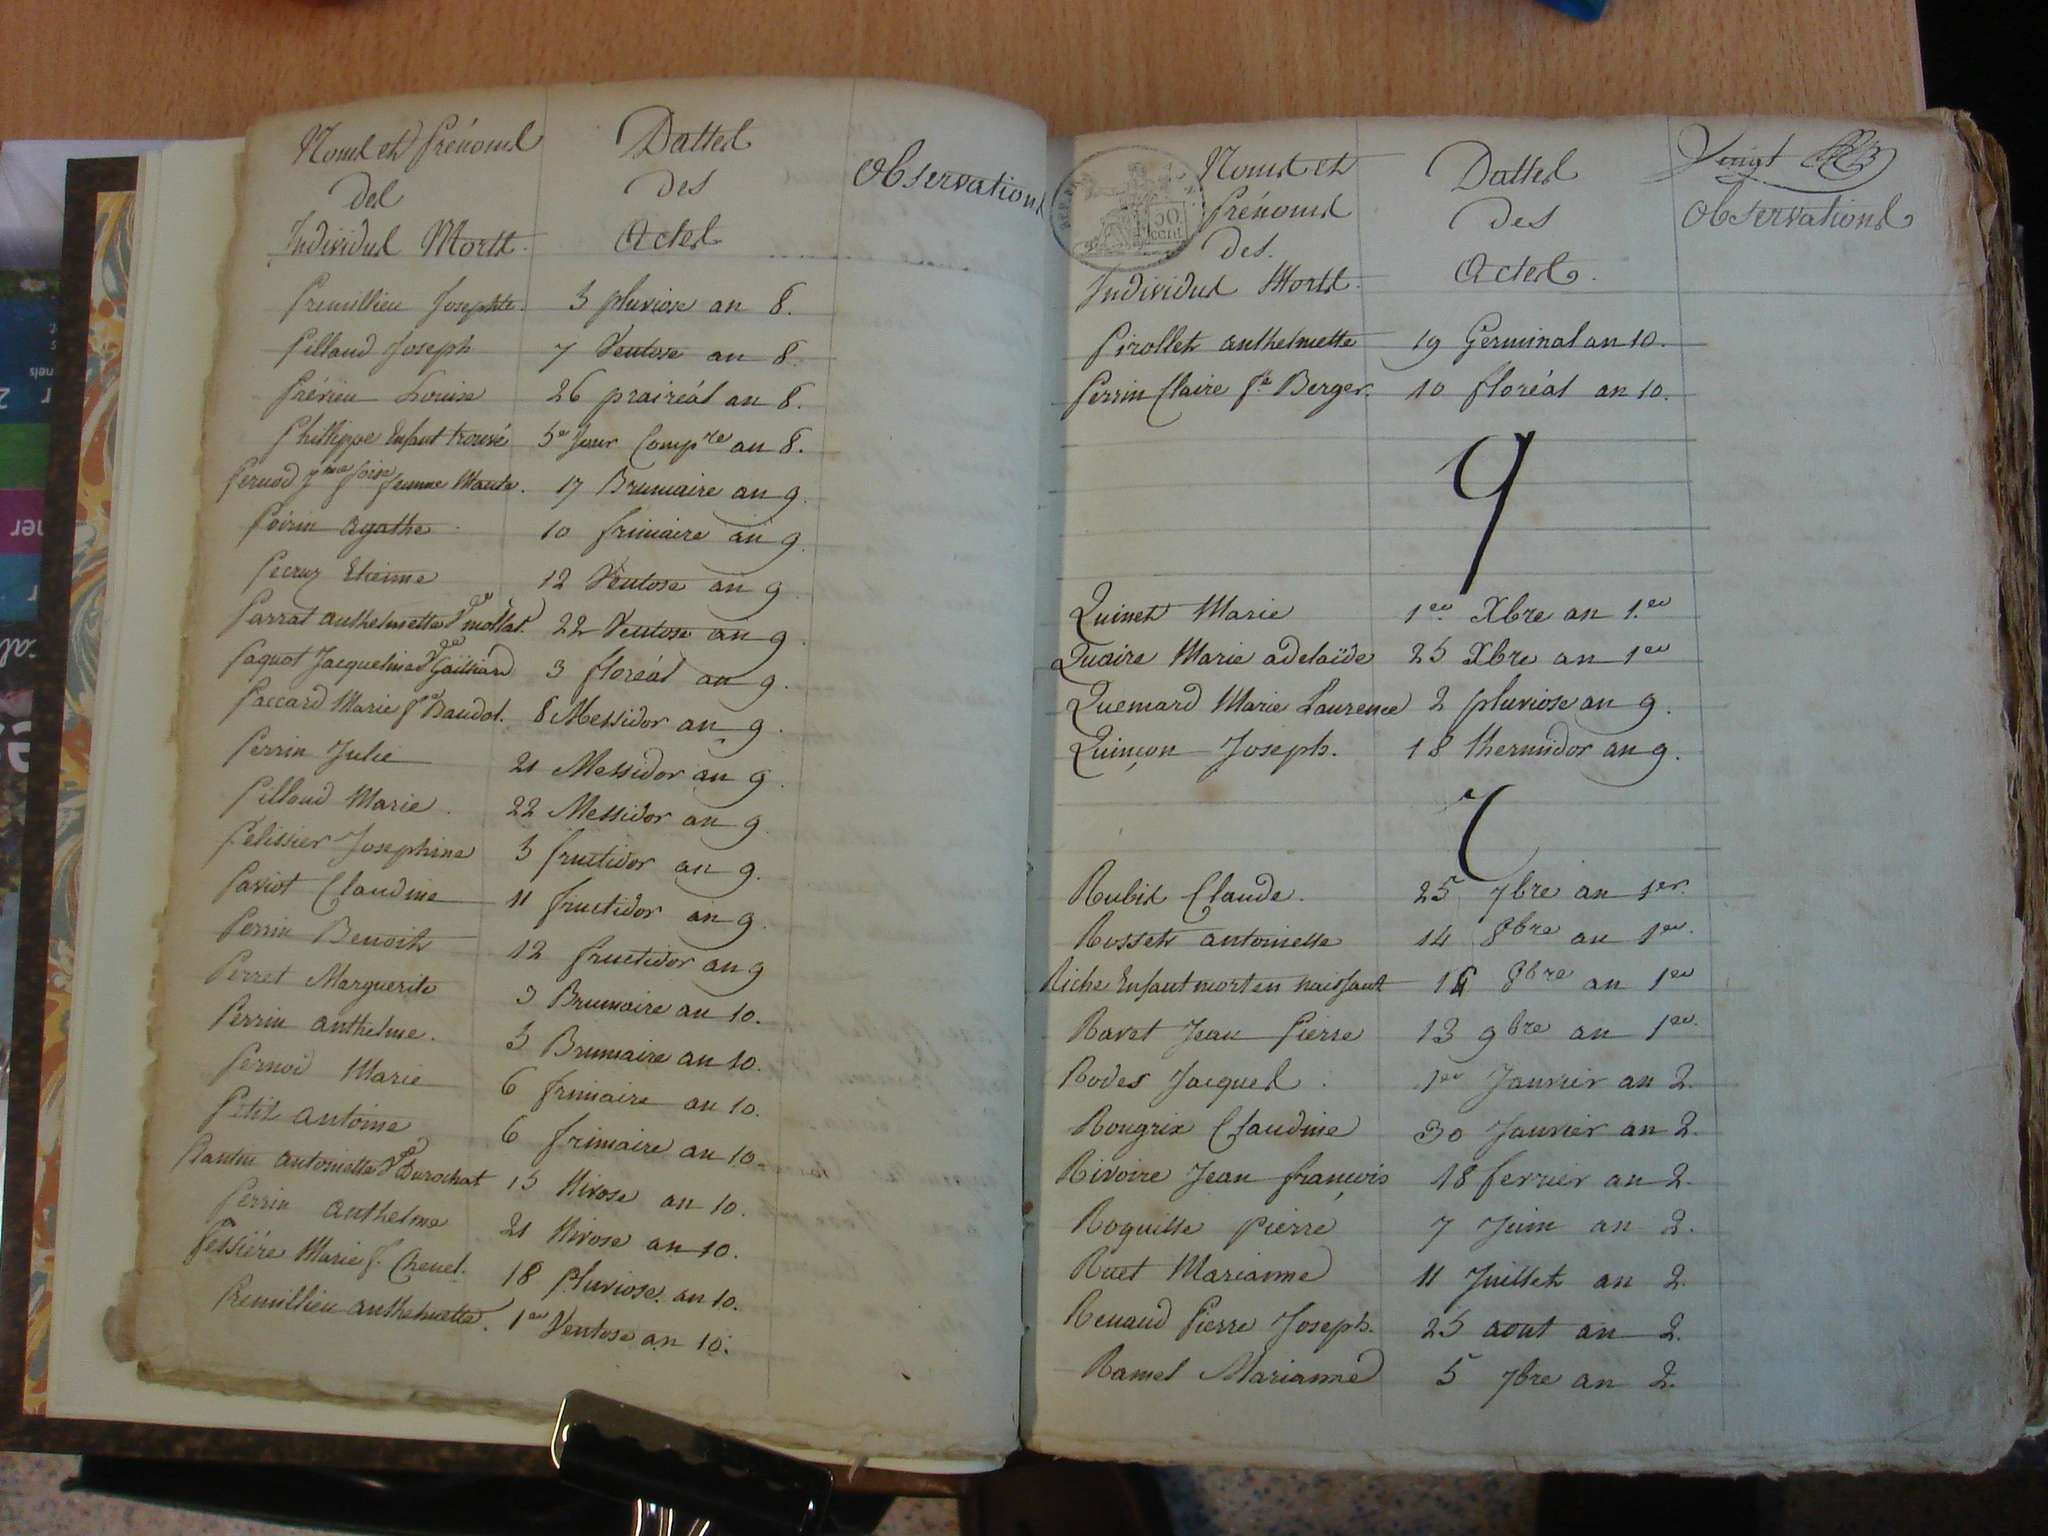 Noms et Prénoms
des
Individus Morts.
Dattes
des
Actes
Observations
Premillieu Josephte. 3 pluviose an 8.
Pillaud Joseph 7 Ventose an 8.
Prévieu Louise 26 prairéal an 8.
Phillippe Enfant trouvé 5e Jour Compre an 8.
Pernod femme Maute. 17 Brumaire an 9.
Périn agathe 10 frimaire an 9.
Pecruz Etienne 12 Ventose an 9.
Parrat anthelmette Vve mollat. 22 Ventose an 9.
Paquot Jacqueline Vve Gailliard 3 floréal an 9.
Paccard Marie fe Baudot. 8 Messidor an 9.
Perrin Julie 21 Messidor an 9.
Pillaud Marie. 22 Messidor an 9.
Pélissier Josephine 3 fructidor an 9.
Paviot Claudine 11 fructidor an 9.
Perrin Benoit 12 fructidor an 9
Perret Marguerite 3 Brumaire an 10.
Perrin anthelme. 3 Brumaire an 10.
Pernod Marie 6 frimaire an 10.
Petit antoine 6 frimaire an 10.
Plantin antoinette Vve Durochat 15 Nivose an 10.
Perrin anthelme 21 Nivose an 10.
Pessière Marie f. Chenel. 18 pluviose. an 10.
Premillieu anthelmette. 1er Ventose an 10.
Vingt
50
cent
Noms et
Prénoms
des.
Individus Morts.
Dattes
des
Actes.
Observations
Pirollet anthelmette 19 Germinal an 10.
Perrin Claire fe Berger. 10 floréal an 10.
Q
Quinet Marie 1er. Xbre an 1.er
Quaire Marie adelaïde 25 Xbre an 1er
Quemard Marie Laurence 2 pluviose an 9.
Quinçon Joseph. 18 thermidor an 9.
R
Rubis Claude. 25 7bre an 1er.
Rosset antoinette 14 8bre an 1er.
Riche Enfant mort en naissant 8bre an 1er
Ravet Jean Pierre 13 9bre an 1er.
Rodes Jacques. 1er Janvier an 2.
Rougrix Claudine 30 Janvier an 2.
Rivoire Jean françois 18 fevrier an 2.
Roquille pierre 7 Juin an 2.
Ruet Marianne 11 Juillet an 2.
Renaud Pierre Joseph. 25 aout an 2.
Ramel Marianne 5 7bre an 2.